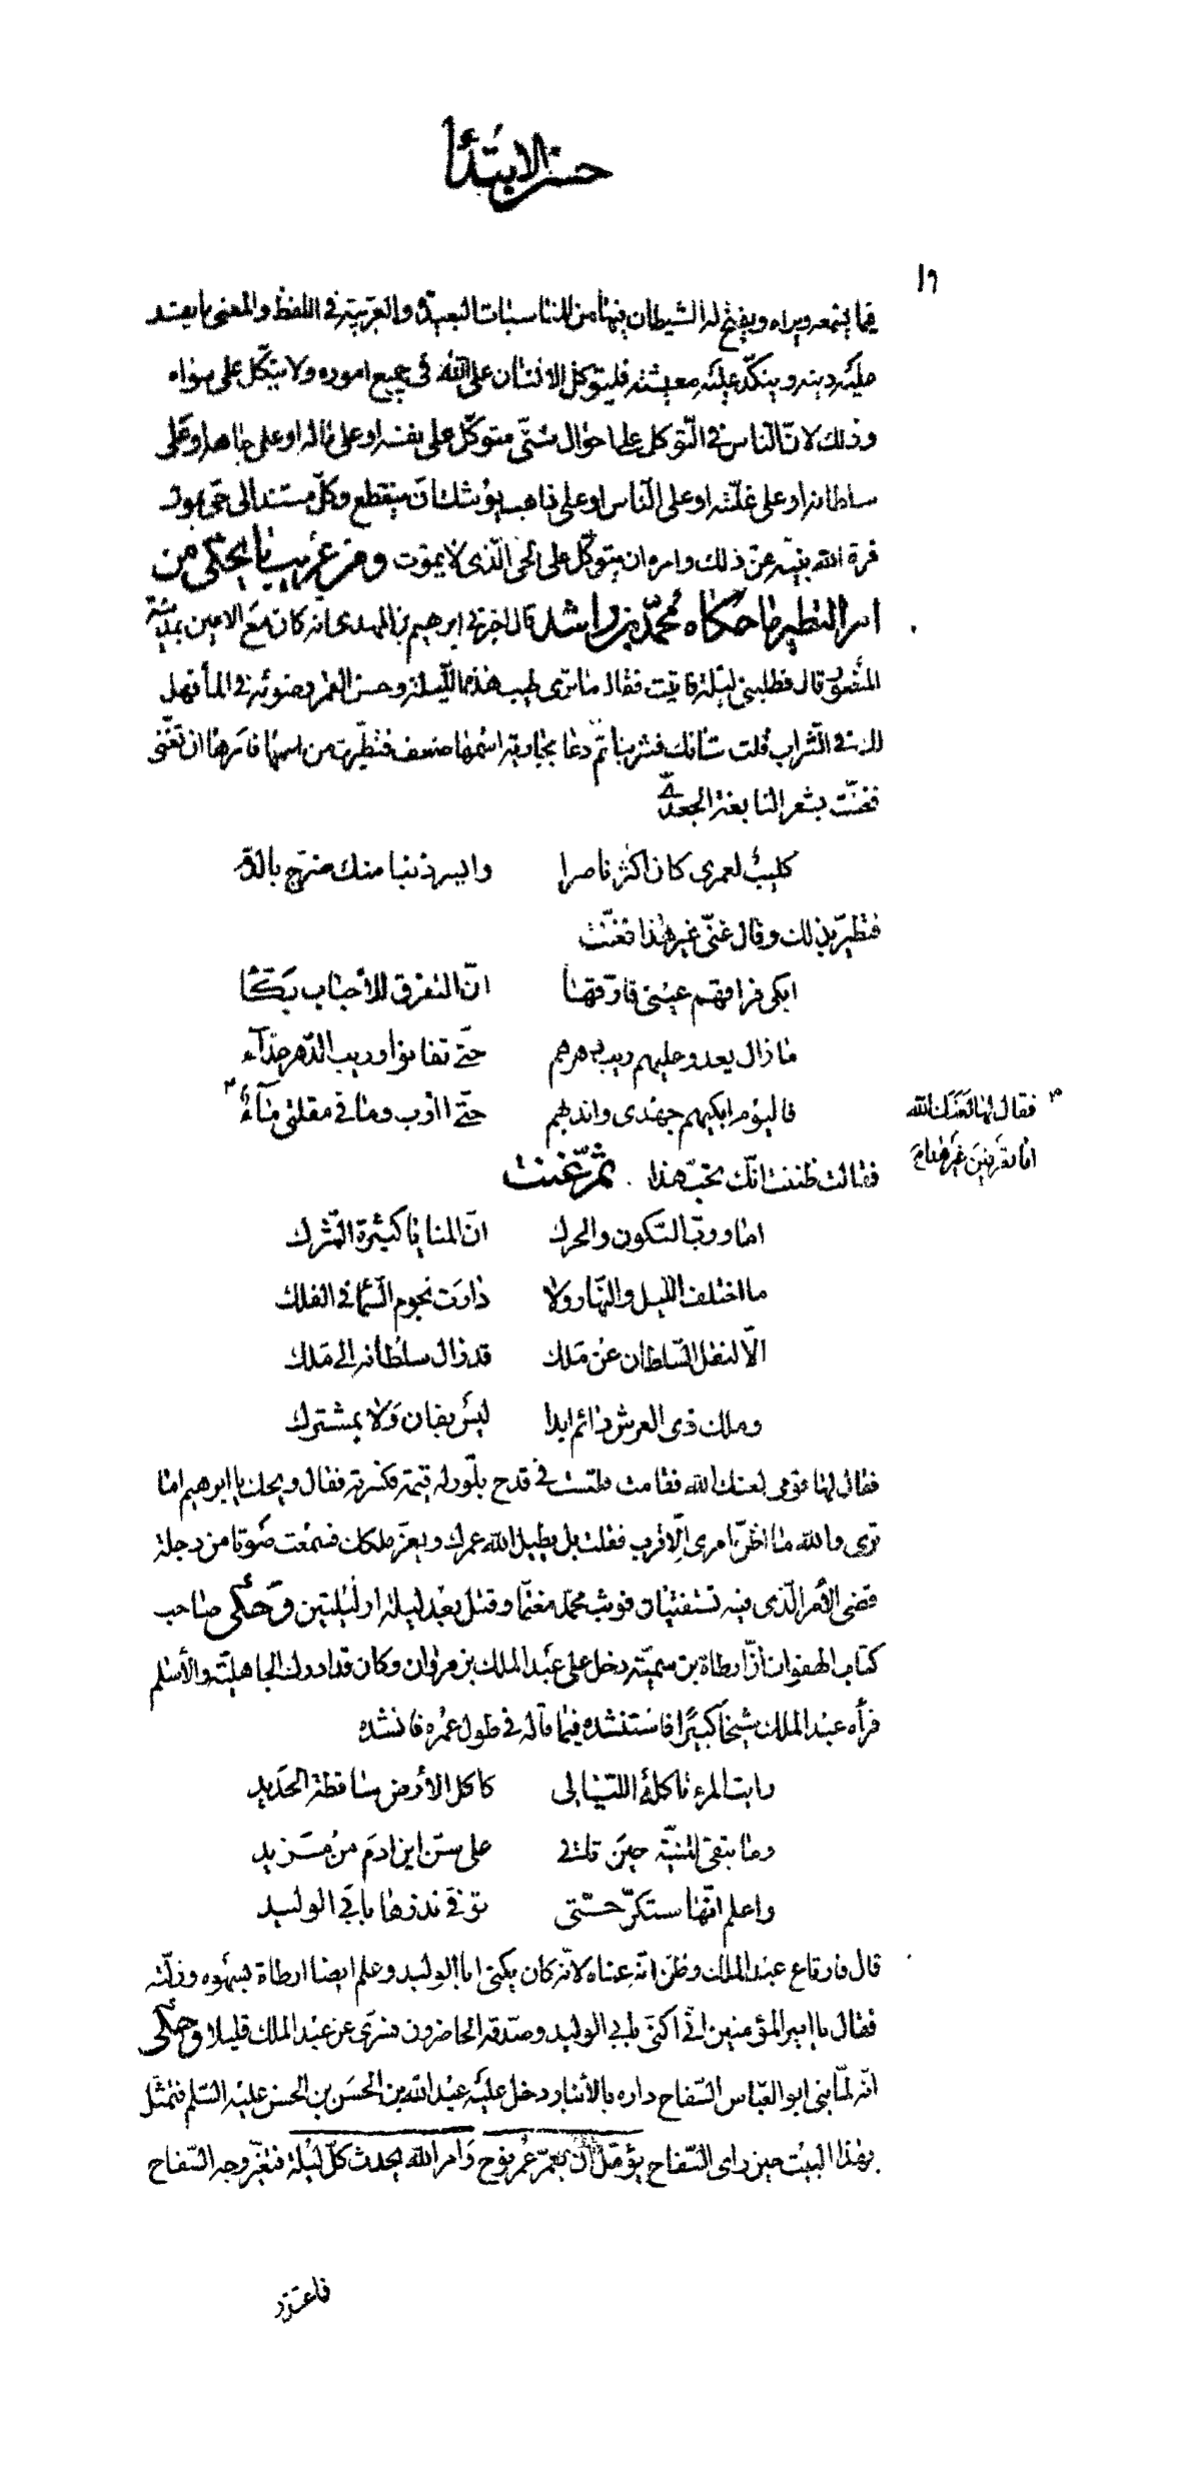 حسن الابتدأ
١٩
فيما يسمعه ويراه ويفتح له الشيطان فيها من المناسبات البعيدة والقريبة في اللفظ والمعنى ما يفسد
عليه دينه وينكد عليه معيشته فليتوكل الانسان على الله في جميع اموره ولا يتكل على سواه
وذلك لانّ الناس في التوكل على احوال شتّى متوكّل على نفسه او على ماله او على جاهه او على
سلطانه او على غلّته او على الناس او على ذاهب يوشك ان ينقطع وكلّ مستند الى حى يموت
فنزه الله نبيّه عن ذلك وامره ان يتوكّل على الحى الّذى لا يموت ومن غريب ما يحكى من
امر التطير ما حكاه محمّد بن راشد قال اخبرنى ابرهيم بن المهدى انه كان مع الامين بمدينة
المنصور قال فطلبنى ليلة فاتيت فقال ما ترى طيب هذه الليلة وحسن القمر وضوئه في الماء فهل
لك في الشراب قلت شانك فشربنا ثم دعا بجارية اسمها ضعف فتطيّرت من اسمها فامرها ان تغنّى
فغنّت بشعر النابغة الجعدى
كليب لعمرى كان اكثر ناصرا وايسر ذنبا منك ضرّج بالدّم
فتطيّر بذلك وقال غنّى غير هذا فغنّت
ابكى فراقهم عينى فارّقها انّ التفرق للأحباب بكّاء
ما زال يعدو عليهم ريب دهرهم حتّى تفانوا وريب الدّهر عدّاء
فاليوم ابكيهم جهدى واندبهم حتّى اأوب وما في مقلتى مآء
فقال لها لعنك الله
اما تعرفين غير هذا
فقالت ظننت انّك تحبّ هذا ثمّ غنت
اما وربّ السّكون والحرك انّ المنايا كثيرة الشّرك
ما اختلف الليل والنهار ولا دارت نجوم السّما في الفلك
الّا لنقل السّلطان عن ملك قد زال سلطانه الى ملك
وملك ذى العرش دائم ابدا ليس بفان ولا بمشترك
فقال لها قومى لعنك الله فقامت فعثرت في قدح بلّور له قيمة فكسرته فقال ويحك يا ابرهيم اما
ترى والله ما اظنّ امرى الّا قرب فقلت بل يطيل الله عمرك ويعزّ ملكك فسمعت صوتا من دجلة
قضى الأمر الّذى فيه تستفتيان فوثب محمّد مغتمّا وقتل بعد ليلة او ليلتين وحكى صاحب
كتاب الهفوات انّ ارطاة بن سميّة دخل على عبد الملك بن مروان وكان قد ادرك الجاهلية والأسلم
فرأه عبد الملك شيخا كبيرًا فاستنشده فيما قاله في طول عمره فانشده
رايت المرء تاكله الليالى كاكل الأرض ساقطة الحديد
وما تبقى المنيّة حين تاتى على ابن ادم من مزيد
واعلم انّها ستكرّ حتّى توفى نذرها بابى الوليد
قال فارتاع عبد الملك وظنّ انّه عناه لانّه كان يكنى ابا الوليد وعلم ايضا ارطاة بسهوه وزلّته
فقال يا امير المؤمنين انى اكنى بابى الوليد وصدّقه الحاضرون فسرّى عن عبد الملك قليلا وحكى
انّه لمّا بنى ابو العبّاس السّفاح داره بالأنبار دخل عليه عبد الله بن الحسن بن الحسن عليه السّلم فتمثّل
بهذا البيت حين راى السّفاح يؤمّل أن يعمّر عمر نوح وامر الله يحدث كلّ ليلة فتغيّر وجه السّفاح